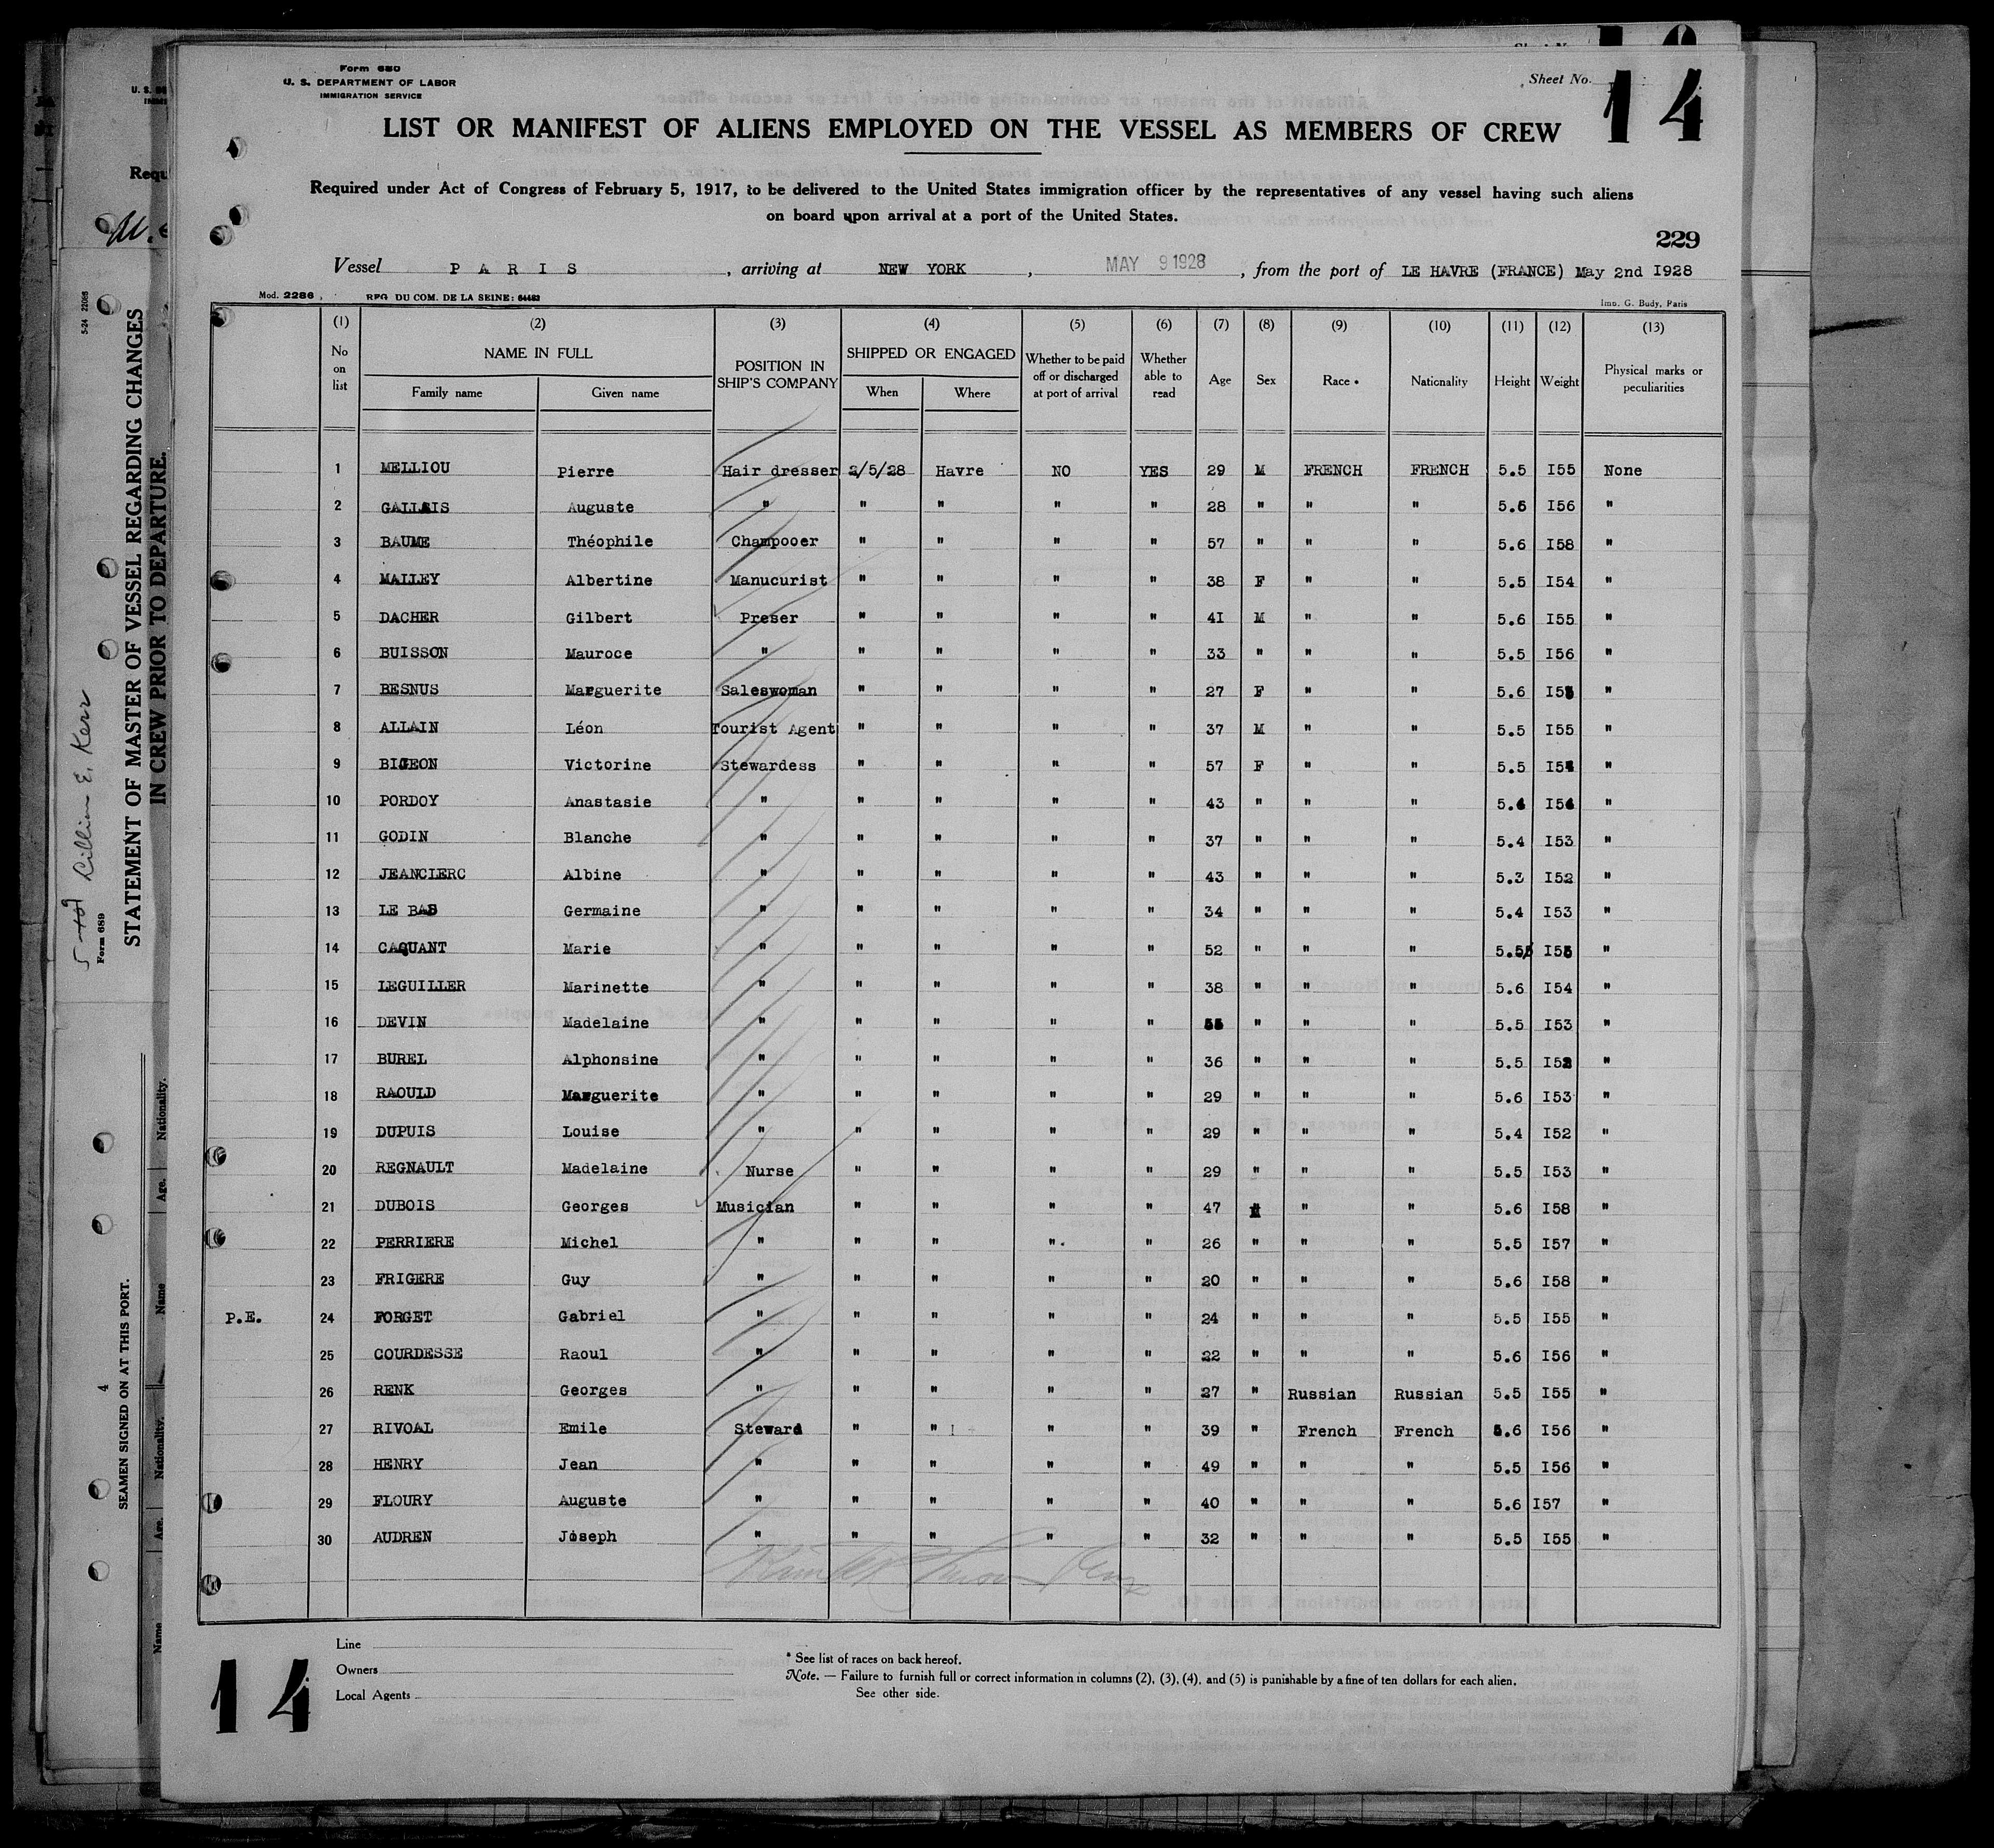 Form 680
U. S. DEPARTMENT OF LABOR
IMMIGRATION SERVICE
Sheet No. 14
LIST OR MANIFEST OF ALIENS EMPLOYED ON THE VESSEL AS MEMBERS OF CREW
Required under Act of Congress of February 5, 1917, to be delivered to the United States immigration officer by the representatives of any vessel having such aliens
on board upon arrival at a port of the United States.
229
Vessel PARIS, arriving at NEW YORK, MAY 9 1928, from the port of LE HAVRE (FRANCE) May 2nd I928
Mod. 2286 REG. DU COM. DE LA SEINE: 64482 Imp. G. Budy, Paris
(1) (2) (3) (4) (5) (6) (7) (8) (9) (10) (11) (12) (13)
No on list NAME IN FULL Family name Given name POSITION IN SHIP'S COMPANY SHIPPED OR ENGAGED When Where Whether to be paid off or discharged at port of arrival Whether able to read Age Sex Race * Nationality Height Weight Physical marks or peculiarities
1 MELLIOU Pierre Hair dresser 2/5/28 Havre NO YES 29 M FRENCH FRENCH 5.5 I55 None
2 GALLAIS Auguste " " " " " 28 " " " 5.6 I56 "
3 BAUME Théophile Champooer " " " " 57 " " " 5.6 I58 "
4 MALLEY Albertine Manucurist " " " " 38 F " " 5.5 I54 "
5 DACHER Gilbert Preser " " " " 4I M " " 5.6 I55 "
6 BUISSON Mauroce " " " " " 33 " " " 5.5 I56 "
7 BESNUS Marguerite Saleswoman " " " " 27 F " " 5.6 "
8 ALLAIN Léon Tourist Agent " " " " 37 M " " 5.5 I55 "
9 BIGEON Victorine Stewardess " " " " 57 F " " 5.5 "
10 PORDOY Anastasie " " " " " 43 " " " 5.4 I54 "
11 GODIN Blanche " " " " " 37 " " " 5.4 I53 "
12 JEANCLERC Albine " " " " " 43 " " " 5.3 I52 "
13 LE BAS Germaine " " " " " 34 " " " 5.4 I53 "
14 CAQUANT Marie " " " " " 52 " " " "
15 LEGUILLER Marinette " " " " " 38 " " " 5.6 I54 "
16 DEVIN Madelaine " " " " " " " " 5.5 I53 "
17 BUREL Alphonsine " " " " " 36 " " " 5.5 I52 "
18 RAOULD Marguerite " " " " " 29 " " " 5.6 I53 "
19 DUPUIS Louise " " " " " 29 " " " 5.4 I52 "
20 REGNAULT Madelaine Nurse " " " " 29 " " " 5.5 I53 "
21 DUBOIS Georges Musician " " " " 47 M " " 5.6 I58 "
22 PERRIERE Michel " " " " " 26 " " " 5.5 I57 "
23 FRIGERE Guy " " " " " 20 " " " 5.6 I58 "
P.E. 24 FORGET Gabriel " " " " " 24 " " " 5.5 I55 "
25 COURDESSE Raoul " " " " " 22 " " " 5.6 I56 "
26 RENK Georges " " " " " 27 " Russian Russian 5.5 I55 "
27 RIVOAL Emile Steward " " " " 39 " French French 5.6 I56 "
28 HENRY Jean " " " " " 49 " " " 5.5 I56 "
29 FLOURY Auguste " " " " " 40 " " " 5.6 I57 "
30 AUDREN Joseph " " " " " 32 " " " 5.5 I55 "
Line
Owners
Local Agents
* See list of races on back hereof.
Note. — Failure to furnish full or correct information in columns (2), (3), (4), and (5) is punishable by a fine of ten dollars for each alien.
See other side.
14
STATEMENT OF MASTER OF VESSEL REGARDING CHANGES
IN CREW PRIOR TO DEPARTURE.
Form 689
Lillian E. Kerr
SEAMEN SIGNED ON AT THIS PORT.
4
Name Age. Nationality. Name Age. Nationality.
Requ